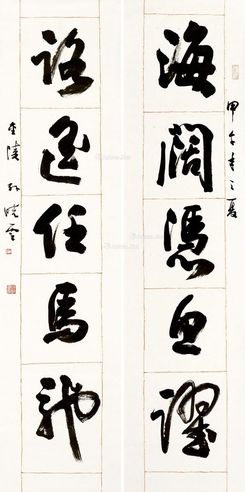 甲午年之夏
海闊憑魚躍
路遥任馬馳
金陵孫曉雲